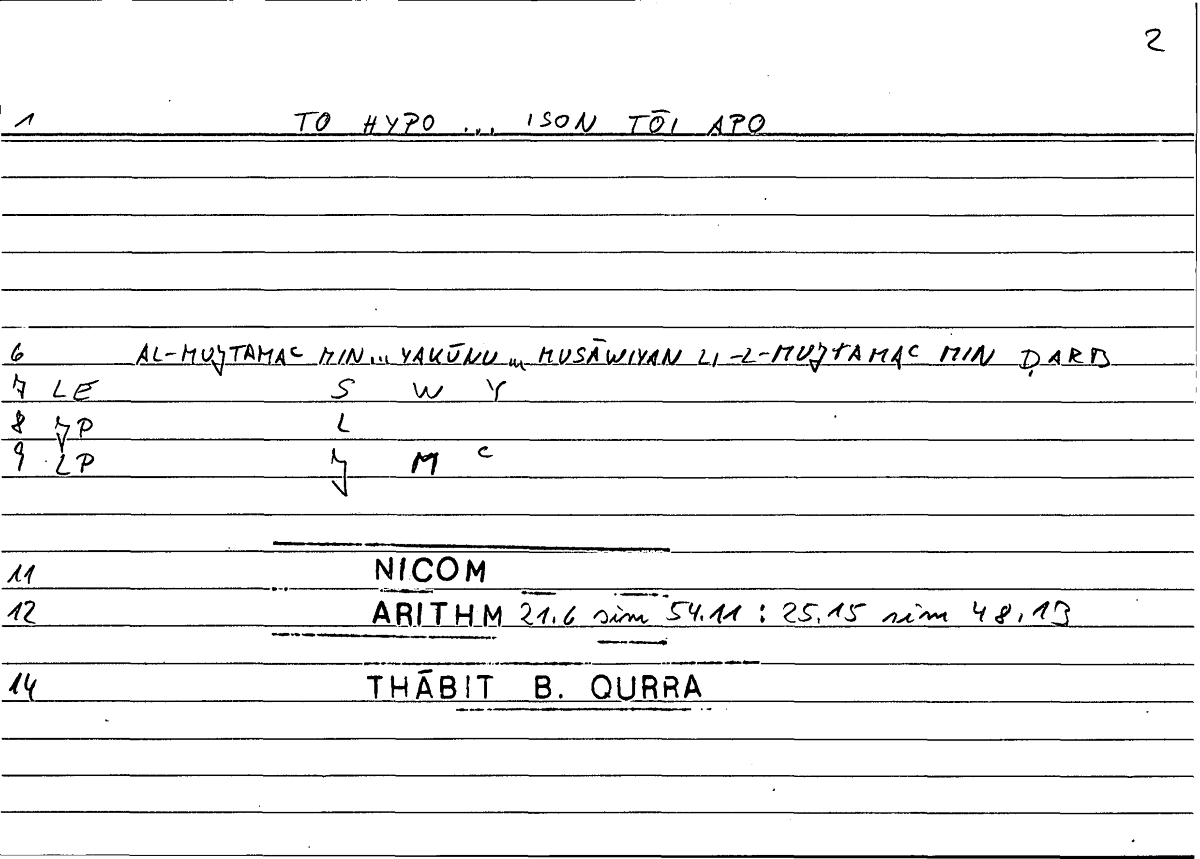 2
1 TO HYPO ... ISON TŌI APO
6 AL-MUJTAMAC MIN ... YAKŪNU ... MUSĀWIYAN LI-L-MUJTAMAC MIN ḌARB
7 LE S W Y
8 JP L
9 LP J M C
11 NICOM
12 ARITHM 21.6 sim 54.11 : 25.15 sim 48.13
14 THĀBIT B. QURRA